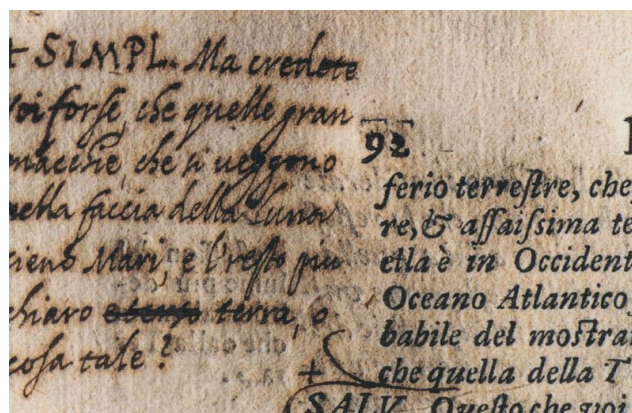 + SIMPL. Ma credete
voi forse, che quelle gran
macchie, che si veggono
nella faccia della Luna
sieno Mari, e l'resto piu
chiaro terra, o
cosa tale?
92
ferio terrestre, che
re, & assaissima te
ella è in Occident
Oceano Atlantico
babile del mostra
+ che quella della T
SALV. Questo che voi